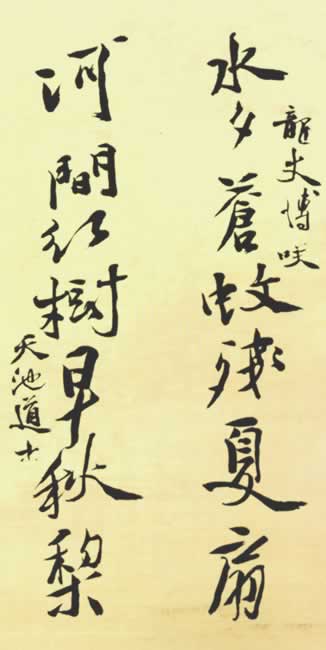 龍史博咲
水蒼蚊殘夏扇
河間紅樹早秋梨
天池道士